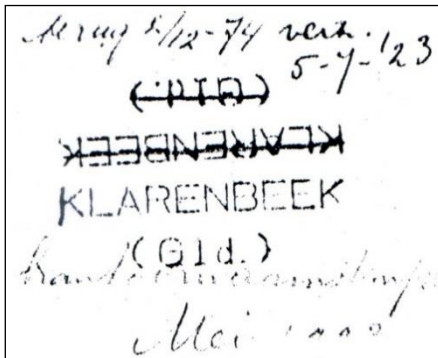 terug 2/12-74 verz.
5-7-'23
(Gld.)
KLARENBEEK
KLARENBEEK
(Gld.)
Mei